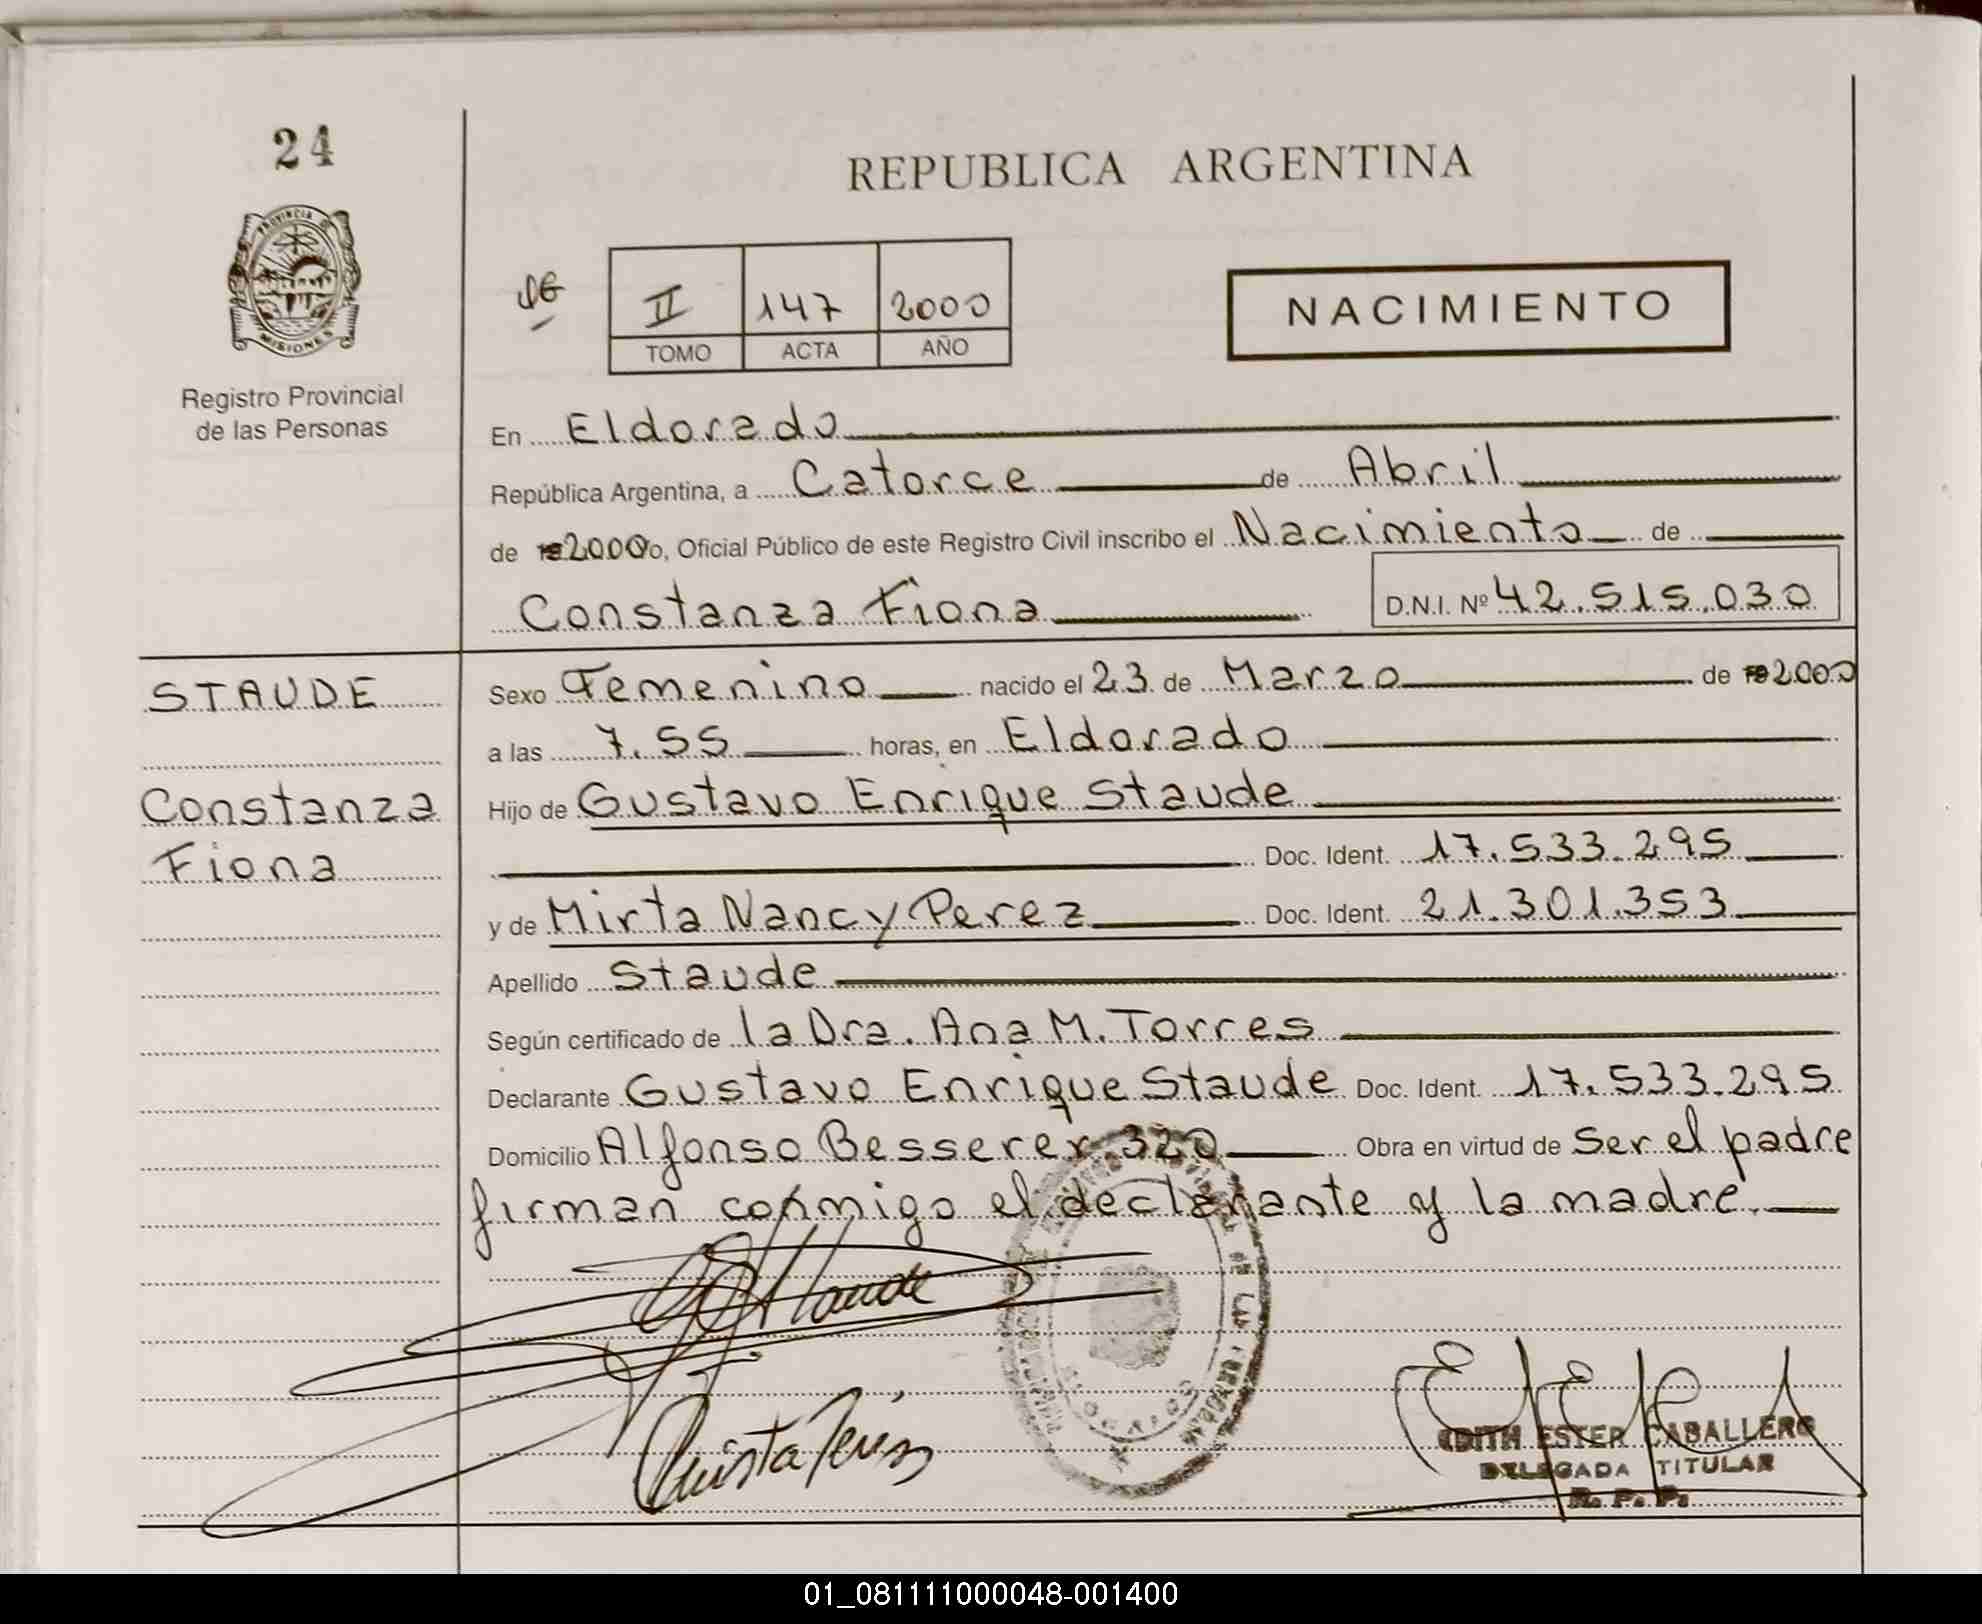 24
REPUBLICA ARGENTINA
PROVINCIA DE
MISIONES
Registro Provincial
de las Personas
II 147 2000
TOMO ACTA AÑO
NACIMIENTO
En Eldorado
República Argentina, a Catorce de Abril
de 2000 o, Oficial Público de este Registro Civil inscribo el Nacimiento de
Constanza Fiona D.N.I. Nº 42.515.030
STAUDE
Constanza
Fiona
Sexo Femenino nacido el 23 de Marzo de 2000
a las 7.55 horas, en Eldorado
Hijo de Gustavo Enrique Staude
Doc. Ident. 17.533.295
y de Mirta Nancy Perez Doc. Ident. 21.301.353
Apellido Staude
Según certificado de la Dra. Ana M. Torres
Declarante Gustavo Enrique Staude Doc. Ident. 17.533.295
Domicilio Alfonso Besserer 320 Obra en virtud de Ser el padre
firman conmigo el declarante y la madre.
Staude
EDITH ESTER CABALLERO
DELEGADA TITULAR
R. P. P.
01_081111000048-001400